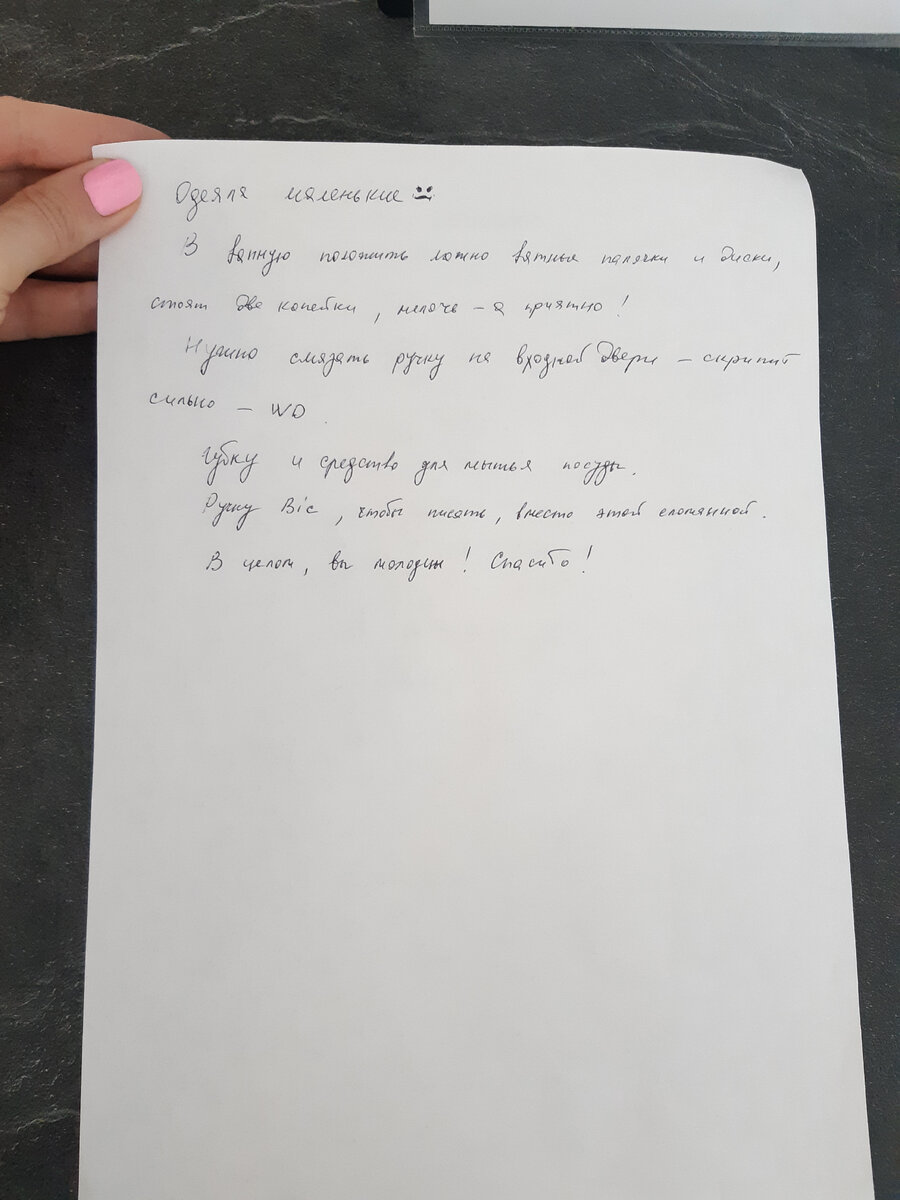 Одеяла маленькие
В ванную положить можно ватные палочки и диски,
стоят две копейки, мелочь - а приятно!
Нужно смазать ручку на входной двери - скрипит
сильно - WD.
Губку и средство для мытья посуды.
Ручку Bic, чтобы писать, вместо этой сломанной.
В целом, вы молодцы! Спасибо!